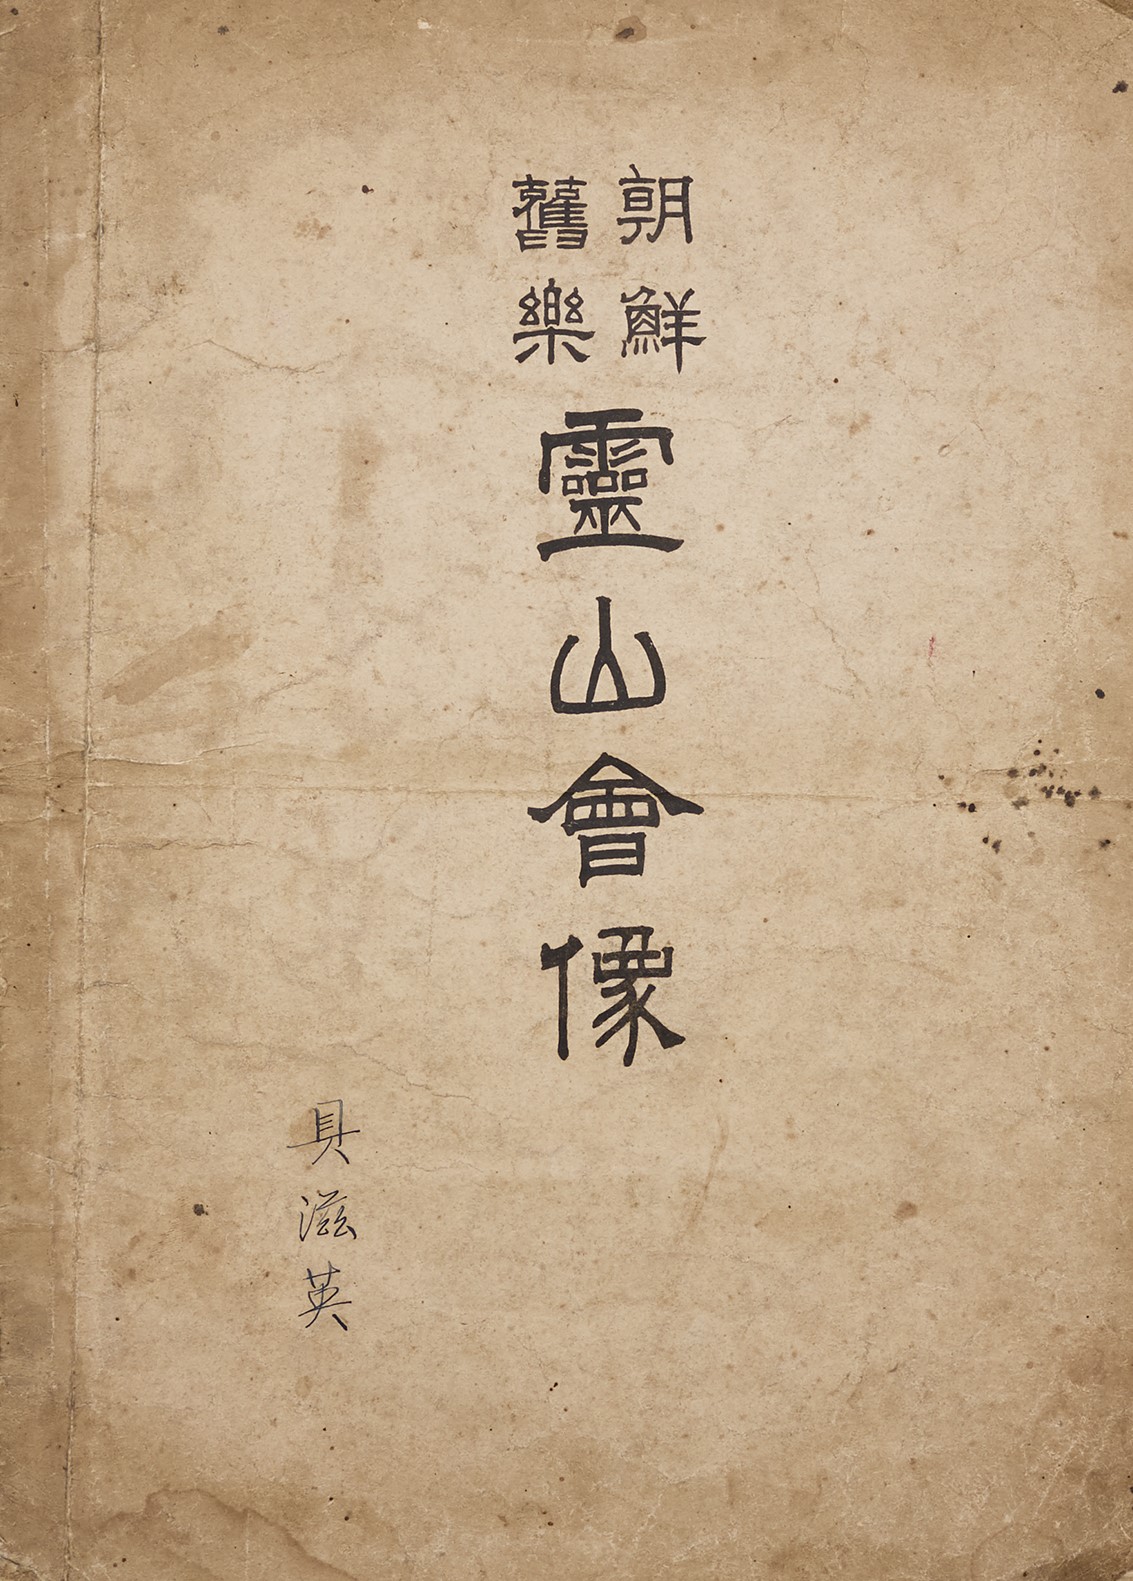 朝鮮
舊樂
靈山會像
具滋英